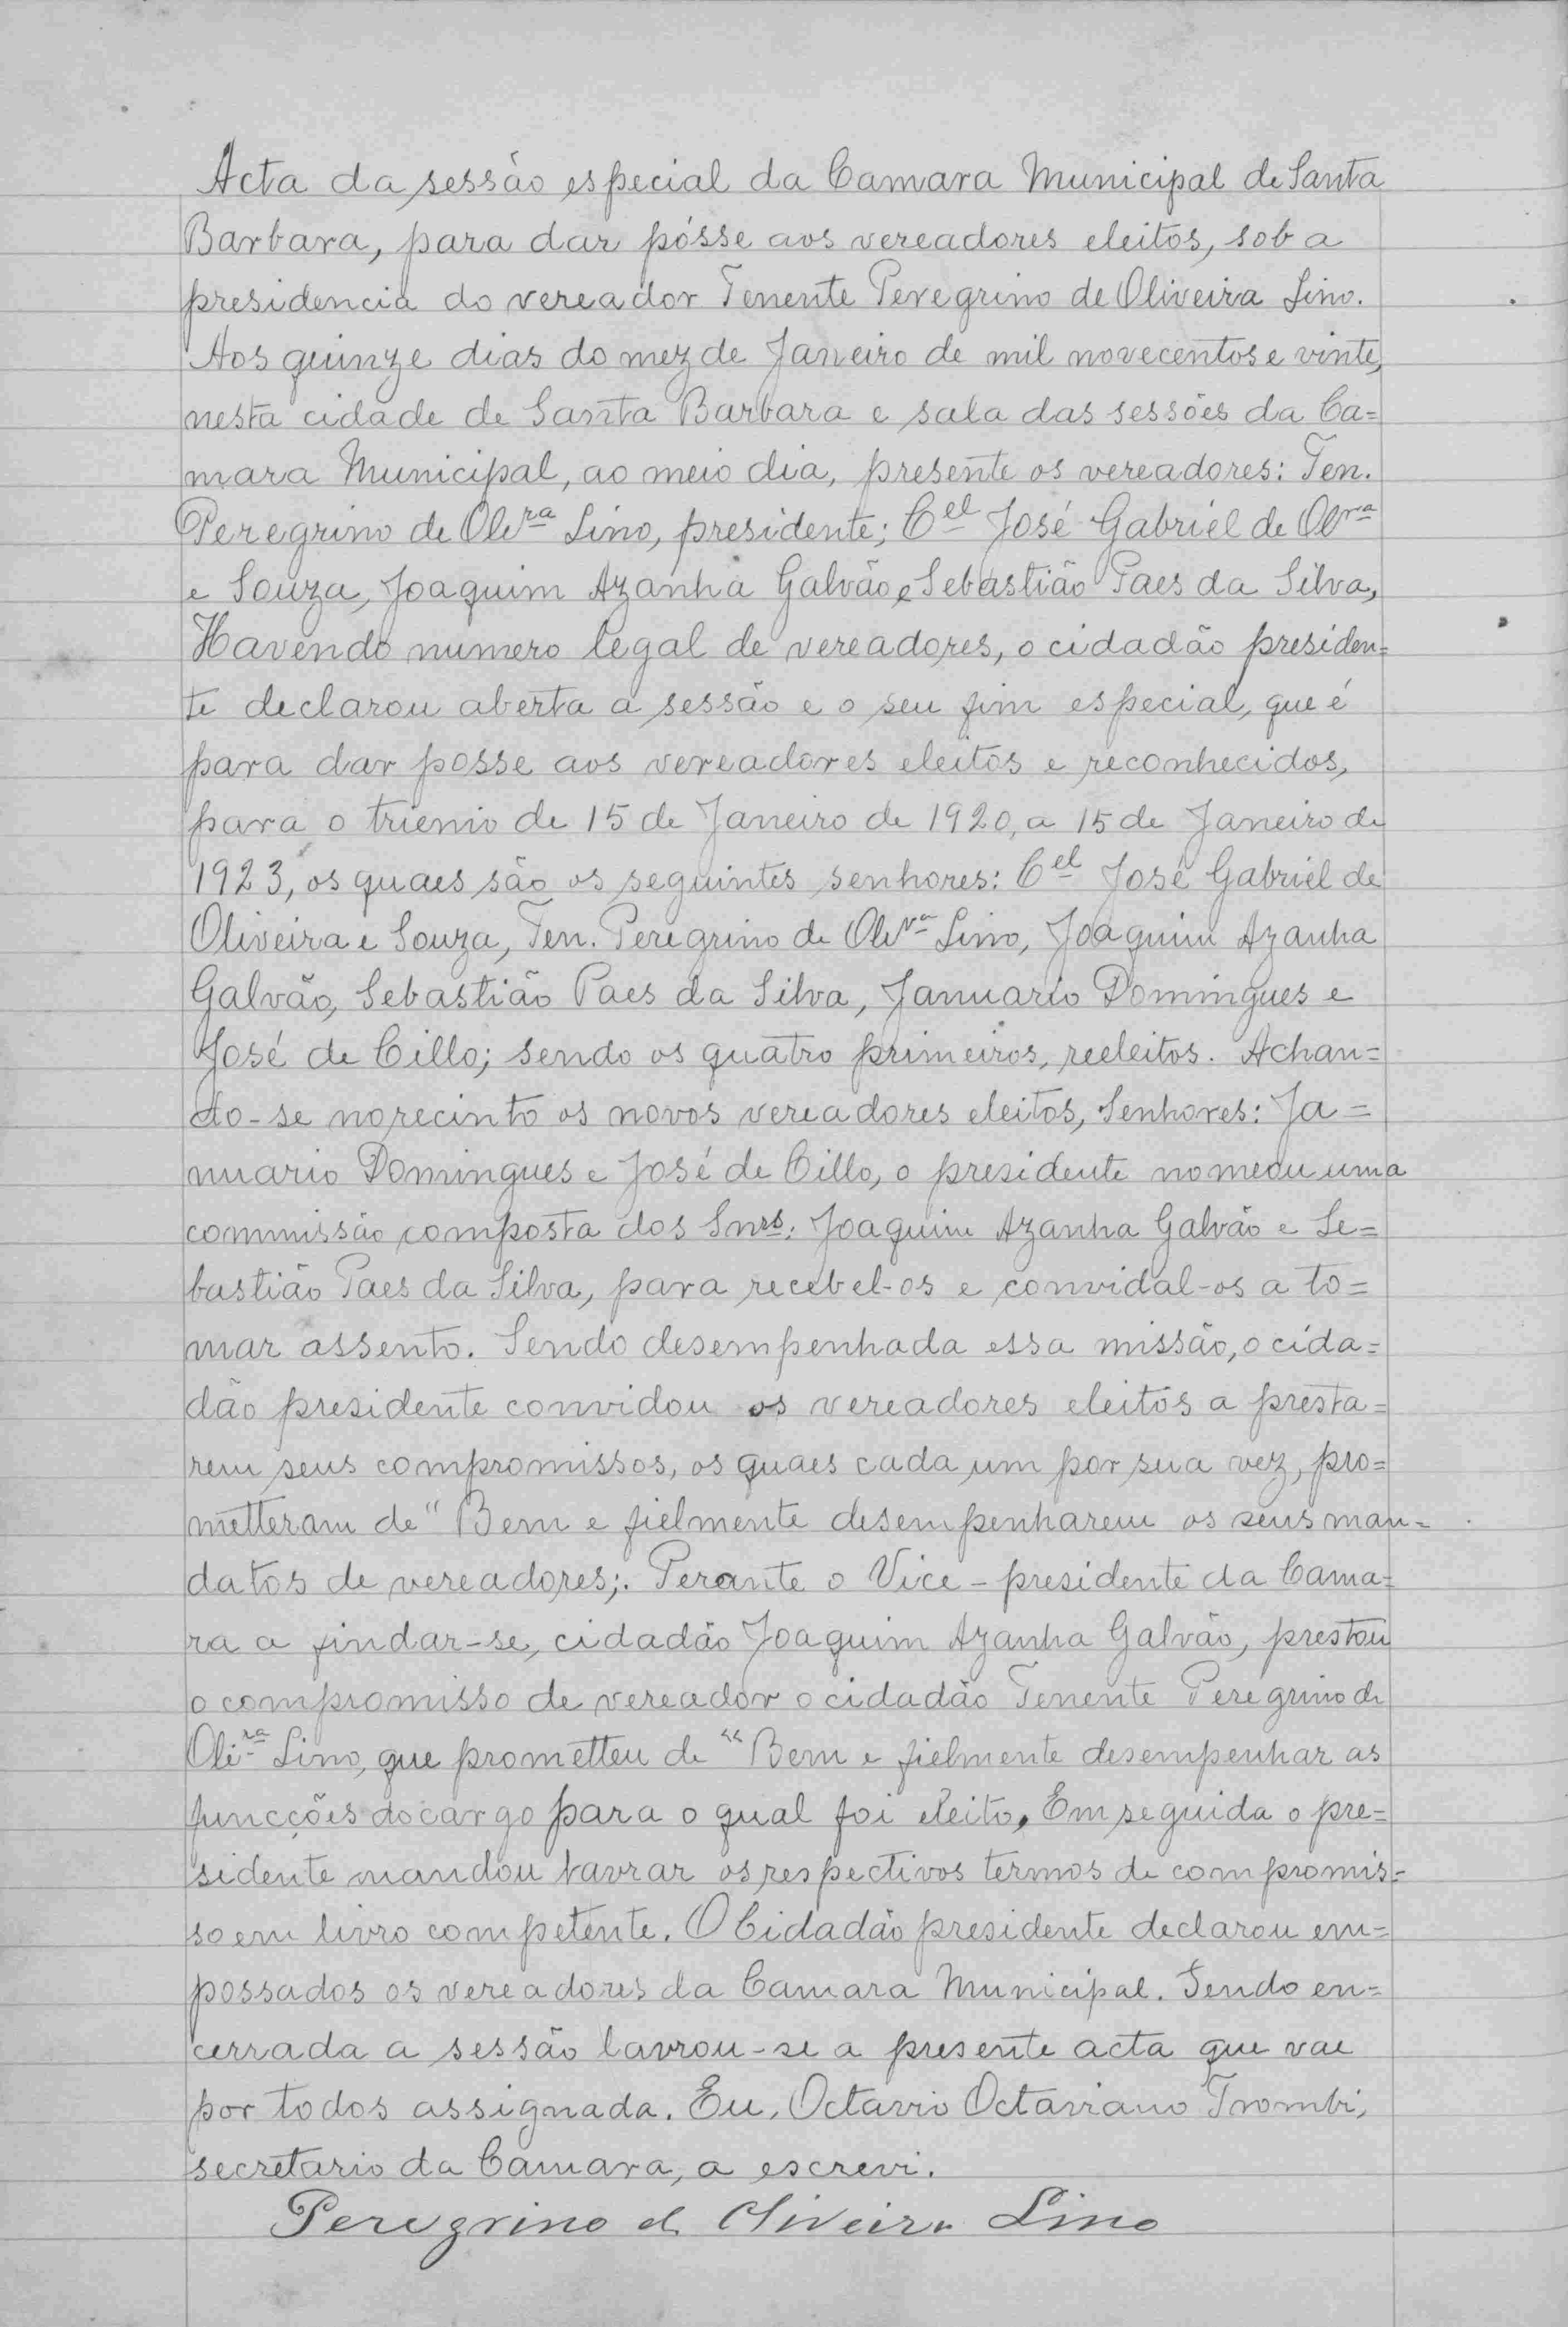 Acta da sessão especial da Camara Municipal de Santa
Barbara, para dar pósse aos vereadores eleitos, sob a
presidencia do vereador Tenente Peregrino de Oliveira Lino.
Aos quinze dias do mez de Janeiro de mil novecentos e vinte,
nesta cidade de Santa Barbara e sala das sessões da Ca=
mara Municipal, ao meio dia, presente os vereadores: Ten.
Peregrino de Olivra Lino, presidente; Cel José Gabriel de Olvra
e Souza, Joaquim Azanha Galvão e Sebastião Paes da Silva,
Havendo numero legal de vereadores, o cidadão presiden=
te declarou aberta a sessão e o seu fim especial, que é
para dar posse aos vereadores eleitos e reconhecidos,
para o trienio de 15 de Janeiro de 1920, a 15 de Janeiro de
1923, os quaes são os seguintes senhores: Cel José Gabriel de
Oliveira e Souza, Ten. Peregrino de Olivra Lino, Joaquim Azanha
Galvão, Sebastião Paes da Silva, Januario Domingues e
José de Cillo; sendo os quatro primeiros, reeleitos. Achan=
do-se no recinto os novos vereadores eleitos, Senhores: Ja=
nuario Domingues e José de Cillo, o presidente nomeou uma
commissão composta dos Snrs: Joaquim Azanha Galvão e Se=
bastião Paes da Silva, para recebel-os e convidal-os a to=
mar assento. Sendo desempenhada essa missão, o cida=
dão presidente convidou os vereadores eleitos a presta=
rem seus compromissos, os quaes cada um por sua vez, pro=
metteram de "Bem e fielmente desempenharem os seus man=
datos de vereadores;. Perante o Vice-presidente da Cama=
ra a findar-se, cidadão Joaquim Azanha Galvão, prestou
o compromisso de vereador o cidadão Tenente Peregrino de
Olira Lino, que prometteu de "Bem e fielmente desempenhar as
funcções do cargo para o qual foi eleito. Em seguida o pre=
sidente mandou lavrar os respectivos termos de compromis=
so em livro competente. O Cidadão presidente declarou em=
possados os vereadores da Camara Municipal. Sendo en=
cerrada a sessão lavrou-se a presente acta que vae
por todos assignada. Eu, Octavio Octaviano Trombi,
secretario da Camara, a escrevi.
Peregrino d Oliveira Lino